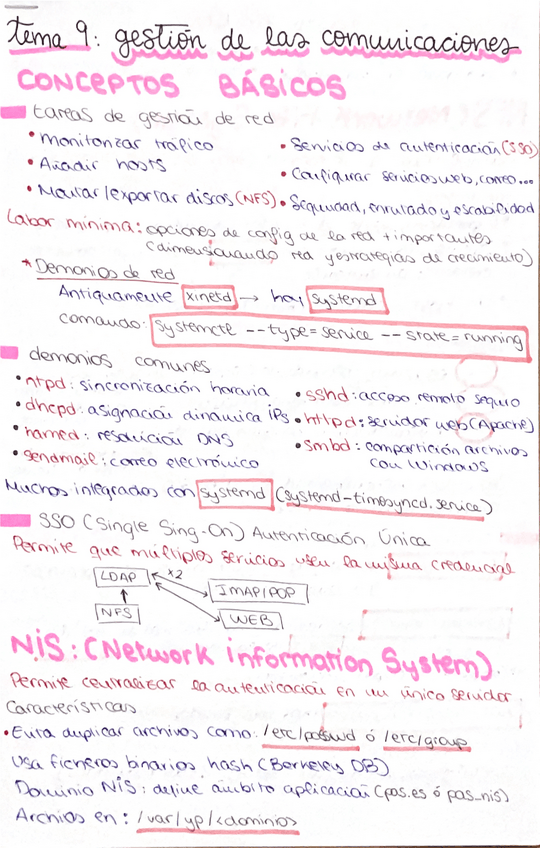 tema 9: gestión de las comunicaciones
CONCEPTOS BÁSICOS
tareas de gestión de red
• Monitorizar tráfico
• Añadir hosts
• Montar/exportar discos (NFS)
• Servicios de autenticación (SSO)
• Configurar servicios web, correo...
• Seguridad, enrutado y escabilidad
Labor mínima: opciones de config de la red + importantes
(dimensionando red y estrategias de crecimiento)
* Demonios de red
Antiguamente xinetd → hoy systemd
comando: systemcte --type=service -- state=running
demonios comunes
• ntpd: sincronización horaria
• dhcpd: asignación dinámica IPs
• named: resolución DNS
• sendmail: correo electrónico
• sshd: acceso remoto seguro
• httpd: servidor web (Apache)
• smbd: compartición archivos
con Windows
Muchos integrados con systemd (systemd-timesyncd.service)
SSO (Single Sing-On) Autenticación Única
Permite que múltiples servicios usen la misma credencial
LDAP x2 IMAP/POP
NFS WEB
NIS: (Network information System).
Permite centralizar la autenticación en un único servidor.
Características
• Evita duplicar archivos como: /etc/passwd ó /etc/group
Usa ficheros binarios hash (Berkeley DB)
Dominio NIS: define ámbito aplicación (pas.es ó pas_nis)
Archios en: /var/yp/<dominios